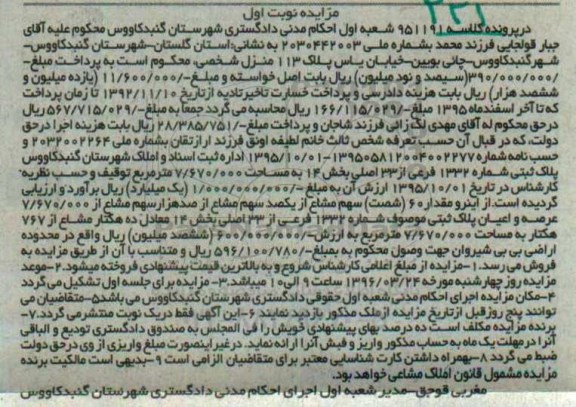 ۲۲۱
مزایده نوبت اول
درپرونده کلاسه ۹۵۱۱۹۱ شعبه اول احکام مدنی دادگستری شهرستان گنبدکاووس محکوم علیه آقای
جبار قولجایی فرزند محمد بشماره ملی ۲۰۳۰۴۴۲۰۰۳ به نشانی:استان گلستان-شهرستان گنبدکاووس-
شهرگنبدکاووس-چائی بویین-خیابان یاس پلاک ۱۱۳ منزل شخصی، محکوم است به پرداخت مبلغ-
/۳۹۰/۰۰۰/۰۰۰(سیصد و نود میلیون) ریال بابت اصل خواسته و مبلغ-/۱۱/۶۰۰/۰۰۰ (یازده میلیون و
ششصد هزار) ریال بابت هزینه دادرسی و پرداخت خسارت تاخیرتادیه ازتاریخ ۱۳۹۲/۱۱/۱۰ تا زمان پرداخت
که تا آخر اسفندماه ۱۳۹۵ مبلغ-/۱۶۶/۱۱۵/۰۲۹ ریال محاسبه می گردد جمعاً به مبلغ-/۵۶۷/۷۱۵/۰۲۹ ریال
درحق محکوم له آقای مهدی لک زائی فرزند شاجان و پرداخت مبلغ-/۲۸/۳۸۵/۷۵۱ ریال بابت هزینه اجرا درحق
دولت، که در قبال آن حسب تعرفه شخص ثالث خانم لطیفه اونق فرزند ارازتقان بشماره ملی ۲۰۳۲۰۰۲۲۶۴ و
حسب نامه شماره ۱۳۹۵۰۵۸۱۲۰۰۴۰۰۲۲۷۷-۱۳۹۵/۱۰/۰۱ اداره ثبت اسناد و املاک شهرستان گنبدکاووس
پلاک ثبتی شماره ۱۳۳۲ فرعی از۳۳ اصلی بخش ۱۴ به مساحت ۷/۶۷۰/۰۰۰ مترمربع توقیف و حسب نظریه
کارشناس در تاریخ ۱۳۹۵/۱۰/۰۱ ارزش آن به مبلغ -/۱/۰۰۰/۰۰۰/۰۰۰ (یک میلیارد) ریال برآورد و ارزیابی
گردیده است.از اینرو مقدار۶۰ (شصت) سهم مشاع از یکصد سهم مشاع از صدهزارسهم مشاع از ۷/۶۷۰/۰۰۰
عرصه و اعیان پلاک ثبتی موصوف شماره ۱۳۳۲ فرعی از ۳۳ اصلی بخش ۱۴ معادل ده هکتار مشاع از ۷۶۷
هکتار به مساحت ۷/۶۷۰/۰۰۰ مترمربع به ارزش-/۶۰۰/۰۰۰/۰۰۰ (ششصد میلیون) ریال واقع در محدوده
اراضی بی بی شیروان جهت وصول محکوم به بمبلغ-/۵۹۶/۱۰۰/۷۸۰ ریال و متناسب با آن از طریق مزایده به
فروش می رسد.۱-مزایده از مبلغ اعلامی کارشناس شروع و به بالاترین قیمت پیشنهادی فروخته میشود.۲-موعد
مزایده روز چهارشنبه مورخه ۱۳۹۶/۰۳/۲۴ ساعت ۹ الی۱۰ میباشد.۳- مزایده برای جلسه اول تشکیل می گردد
۴-مکان مزایده اجرای احکام مدنی شعبه اول حقوقی دادگستری شهرستان گنبدکاووس می باشد۵-متقاضیان می
توانند پنج روزقبل ازتاریخ مزایده ازملک مذکور بازدید نمایند ۶-این آگهی فقط دریک نوبت منتشرمی گردد.۷-
برنده مزایده مکلف است ده درصد بهای پیشنهادی خویش را فی المجلس به صندوق دادگستری تودیع و الباقی
آنرا درمهلت یک ماه به حساب مذکور واریز و فیش آنرا ارائه نماید. درغیراینصورت مبلغ واریزی از وی درحق دولت
ضبط می گردد ۸-بهمراه داشتن کارت شناسایی معتبر برای متقاضیان الزامی است ۹-بدیهی است مالکیت برنده
مزایده مشمول قانون املاک مشاعی خواهد بود.
مغربی قوجق-مدیر شعبه اول اجرای احکام مدنی دادگستری شهرستان گنبدکاووس